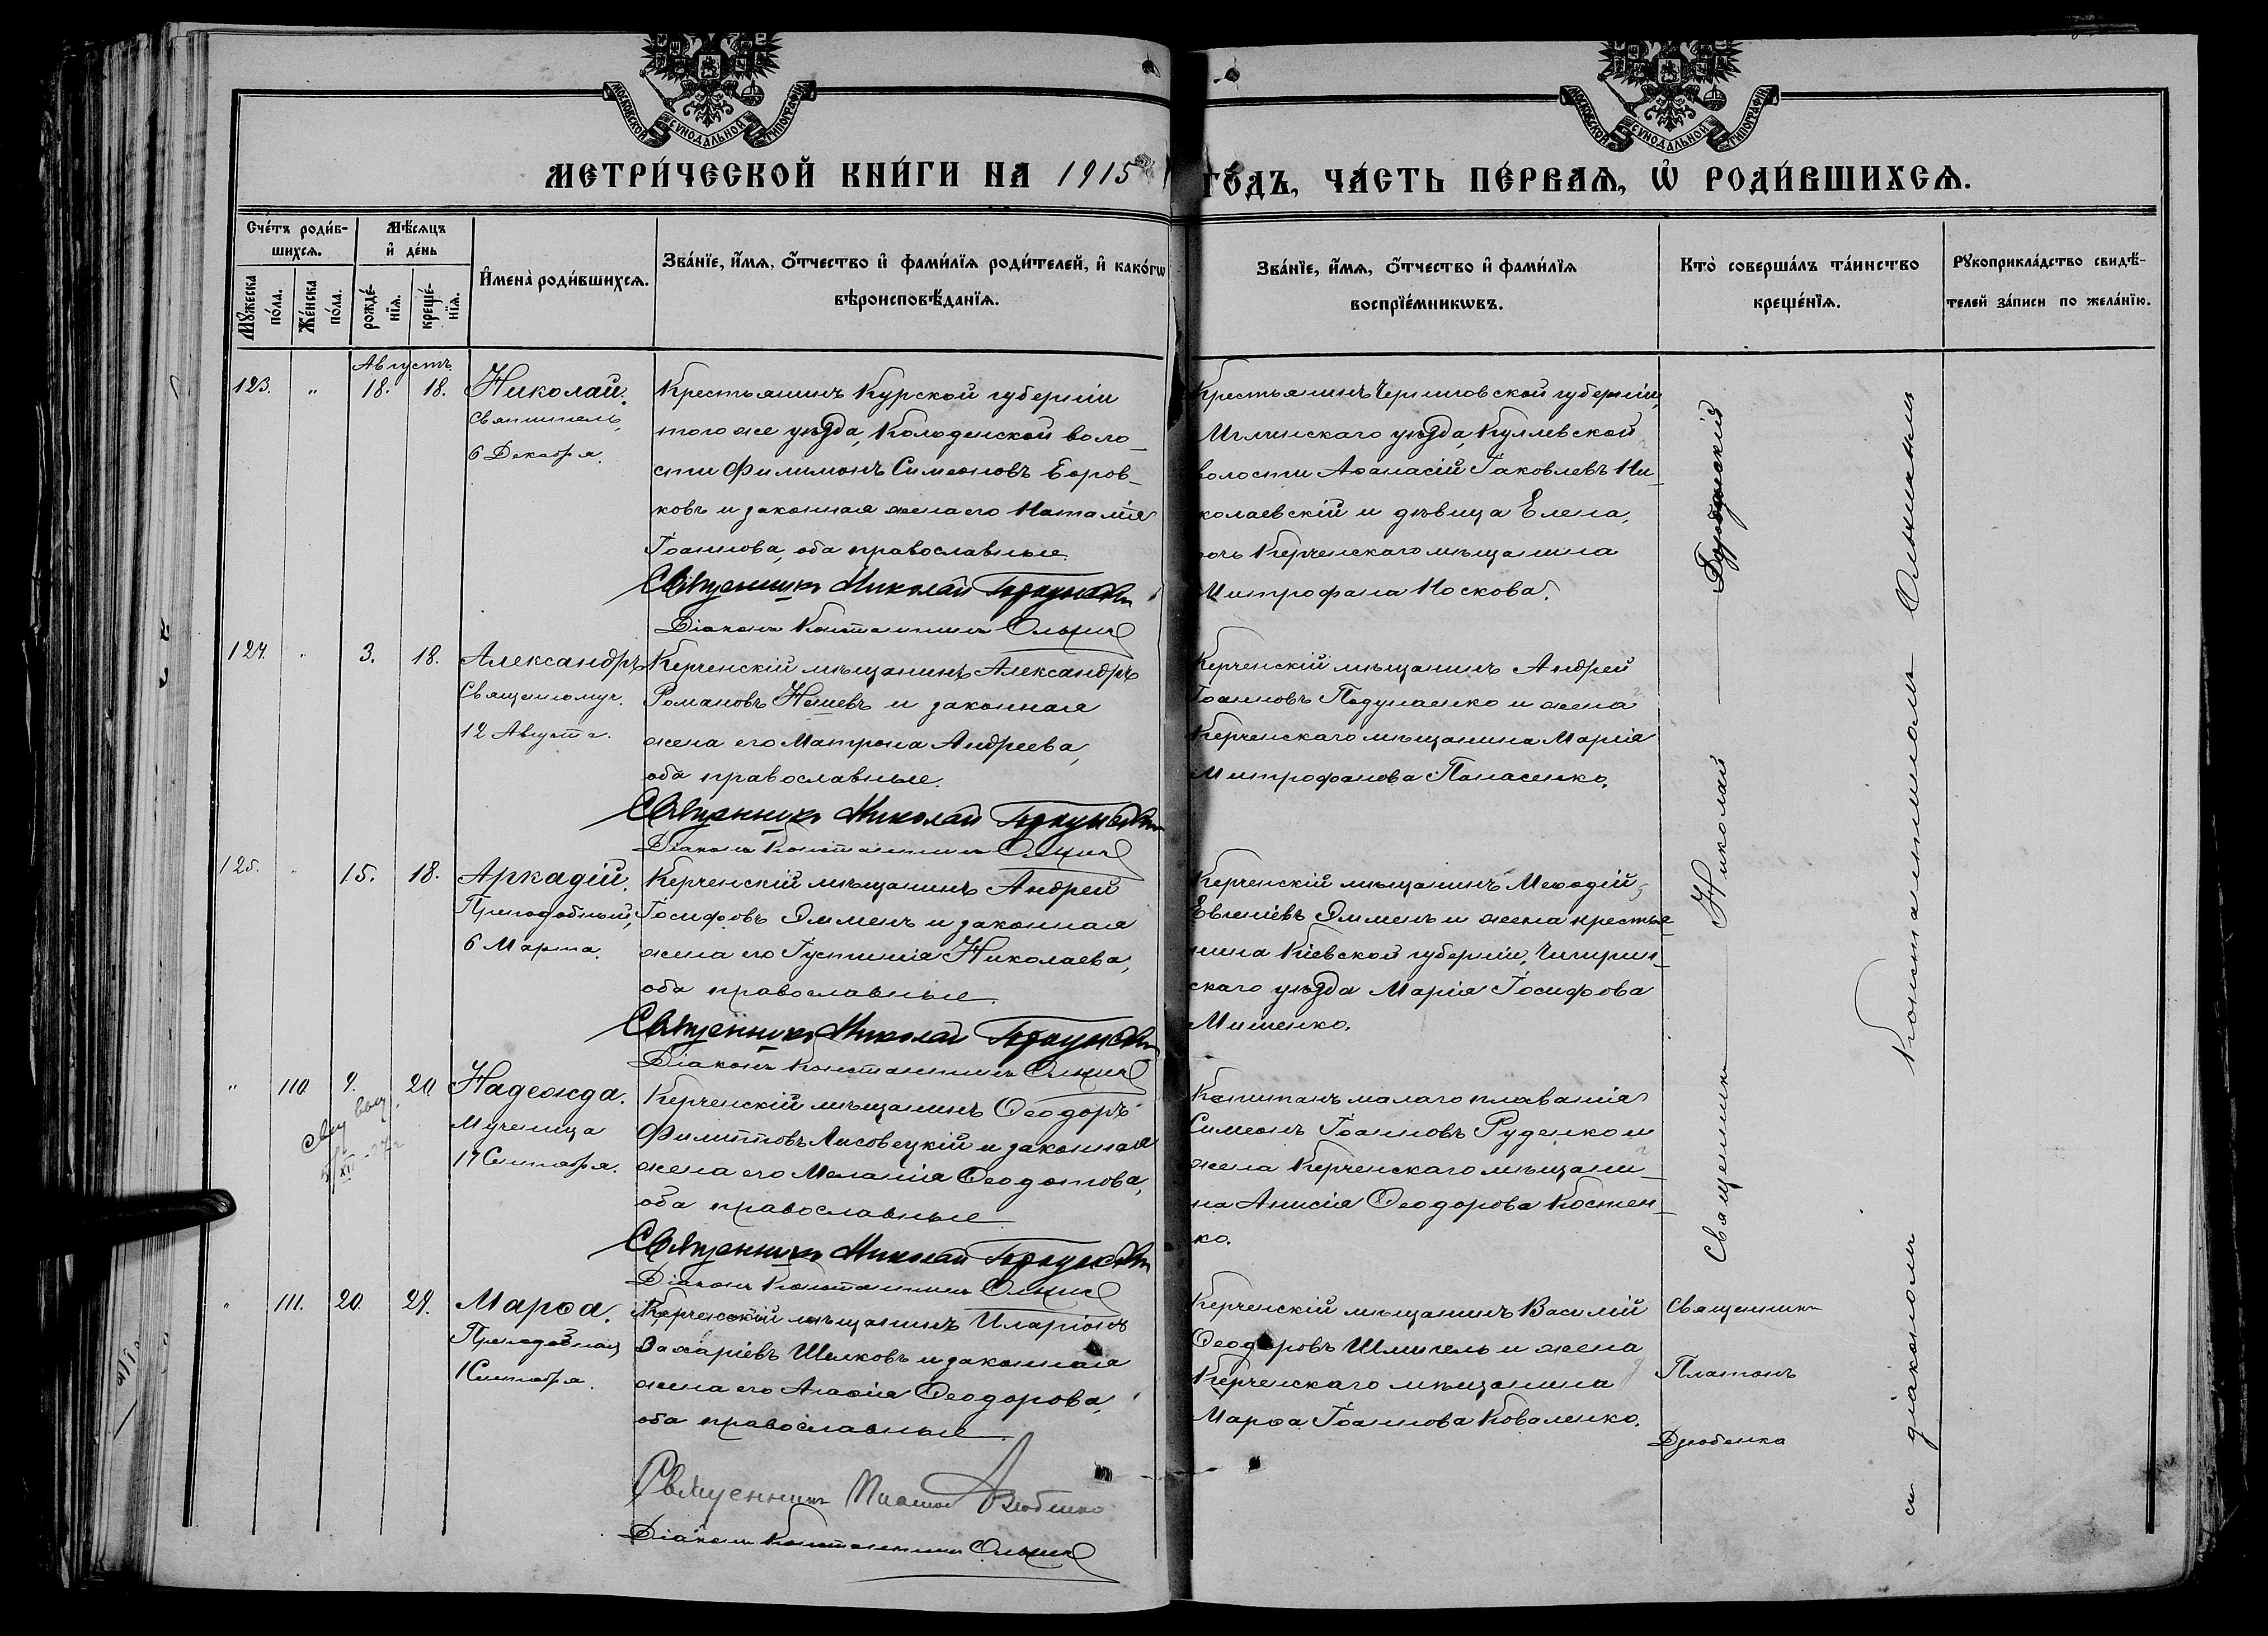 МОСКОВСКОЙ СѴНОДАЛЬНОЙ ТИПОГРАФІИ
МОСКОВСКОЙ СѴНОДАЛЬНОЙ ТИПОГРАФІИ
МЕТРИ́ЧЕСКОЙ КНИ́ГИ НА 1915 ГО́ДЪ, ЧА́СТЬ ПЕ́РВАѦ, Ѡ҆ РОДИ́ВШИХСѦ.
Сче́тъ роди́в-
шихсѧ.
Мꙋ́жеска
по́ла.
Же́нска
по́ла.
Мѣ́сѧцъ
и҆ де́нь
рожде́-
нїѧ.
креще́-
нїѧ.
И҆мена̀ роди́вшихсѧ.
Зва́нїе, и҆́мѧ, ѻ҆́тчество и҆ фами́лїѧ роди́телей, и҆ како́гѡ
вѣроисповѣ́данїѧ.
Зва́нїе, и҆́мѧ, ѻ҆́тчество и҆ фами́лїѧ
воспрїе́мникѡвъ.
Кто̀ соверша́лъ та́инство
креще́нїѧ.
Рꙋкоприкла́дство свидѣ́-
телей за́писи по жела́нїю.
Августъ
123. " 18. 18. Николай.
Святитель,
6 Декабря.
Крестьянинъ Курской губерніи
того же уѣзда, Колоденской воло-
сти Филимонъ Симеоновъ Боров-
ковъ и законная жена его Наталія
Іоаннова, оба православные.
Священникъ Николай
Діаконъ Константинъ
Крестьянинъ Черниговской губерніи,
Мглинскаго уѣзда, Куллевской
волости Аѳанасій Іаковлевъ Ни-
колаевскій и дѣвица Елена,
дочь Керченскаго мѣщанина
Митрофана Носкова.
124. " 3. 18. Александръ
Священномуч.
12 Августа.
Керченскій мѣщанинъ Александръ
Романовъ Нешевъ и законная
жена его Матрона Андреева,
оба православные.
Священникъ Николай
Діаконъ Константинъ
Керченскій мѣщанинъ Андрей
Іоанновъ Подуналко и жена
Керченскаго мѣщанина Марія
Митрофанова Панасенко.
125. " 15. 18. Аркадій.
Преподобный,
6 Марта.
Керченскій мѣщанинъ Андрей
Іосифовъ Эммень и законная
жена его Іустинія Николаева,
оба православные.
Священникъ Николай
Діаконъ Константинъ
Керченскій мѣщанинъ Меѳодій
Евгеніевъ Эммень и жена крестья-
нина Кіевской губерніи, Чигирин-
скаго уѣзда Марія Іосифова
Мишенко.
" 110. 9. 20. Надежда.
Мученица
17 Сентября.
Керченскій мѣщанинъ Ѳеодоръ
Филипповъ Лисовецкій и законная
жена его Меланія Ѳеодотова,
оба православные.
Священникъ Николай
Діаконъ Константинъ
Капитанъ малаго плаванія
Симеонъ Іоанновъ Руденко и
жена Керченскаго мѣщани-
на Анисія Ѳеодорова Костен-
ко.
" 111. 20. 29. Марѳа.
Преподобная
1 Сентября.
Керченскій мѣщанинъ Иларіонъ
Захаріевъ Шелковъ и законная
жена его Агаѳія Ѳеодорова,
оба православные.
Священникъ Платонъ Дзюбенко
Діаконъ Константинъ
Керченскій мѣщанинъ Василій
Ѳеодоровъ Шмигель и жена
Керченскаго мѣщанина
Марѳа Іоаннова Коваленко.
Священникъ Николай
Священникъ
Платонъ
Дзюбенко
съ діакономъ Константиномъ